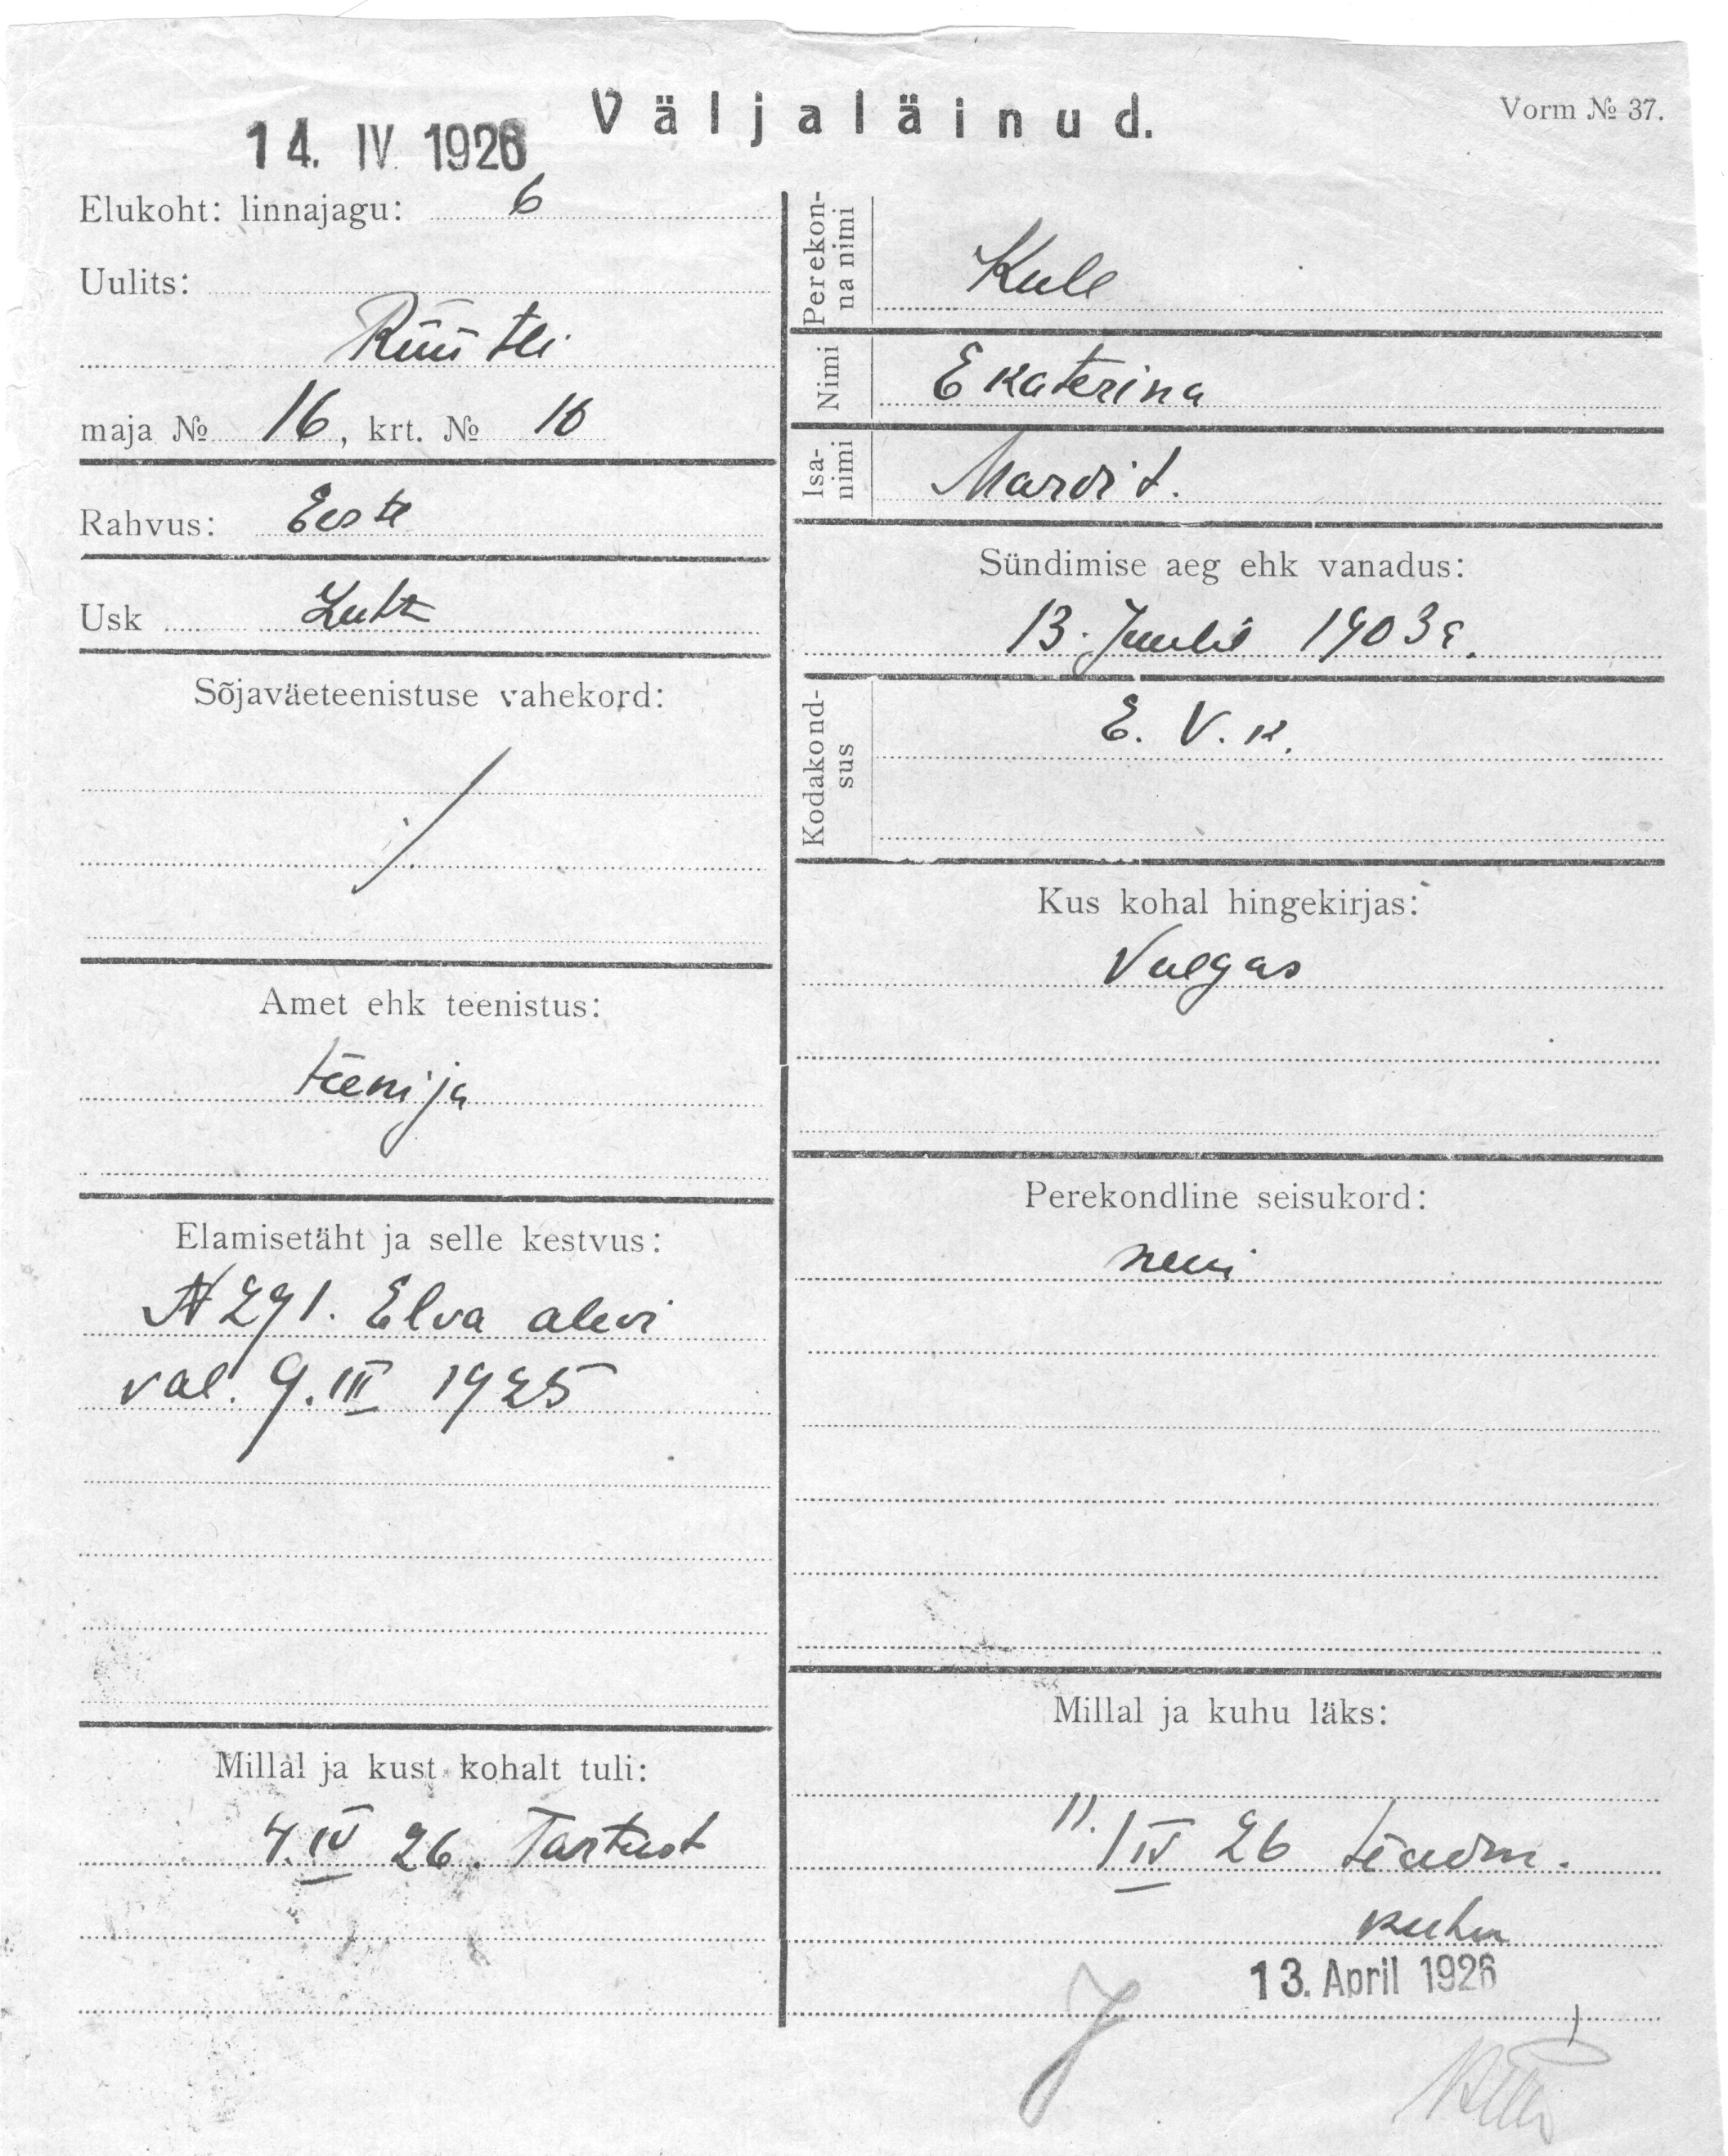 Väljaläinud.
Vorm № 37.
14. IV 1926
Elukoht: linnajagu: 6
Uulits:
Rüütli
maja № 16, krt. № 10
Rahvus: Eesti
Usk Luth
Sõjaväeteenistuse vahekord:
/
Amet ehk teenistus:
teenija
Elamisetäht ja selle kestvus:
N 291. Elva alevi
val. 9. III 1925
Millal ja kust kohalt tuli:
4. IV 26. Tartust
Perekon-
na nimi
Kull
Nimi
Ekaterina
Isa-
nimi
Mardi t.
Sündimise aeg ehk vanadus:
13. Juulil 1903 a.
Kodakond-
sus
E. V. k.
Kus kohal hingekirjas:
Valgas
Perekondline seisukord:
neiu
Millal ja kuhu läks:
11. / IV 26 teadm.
kuhu
13. April 1926